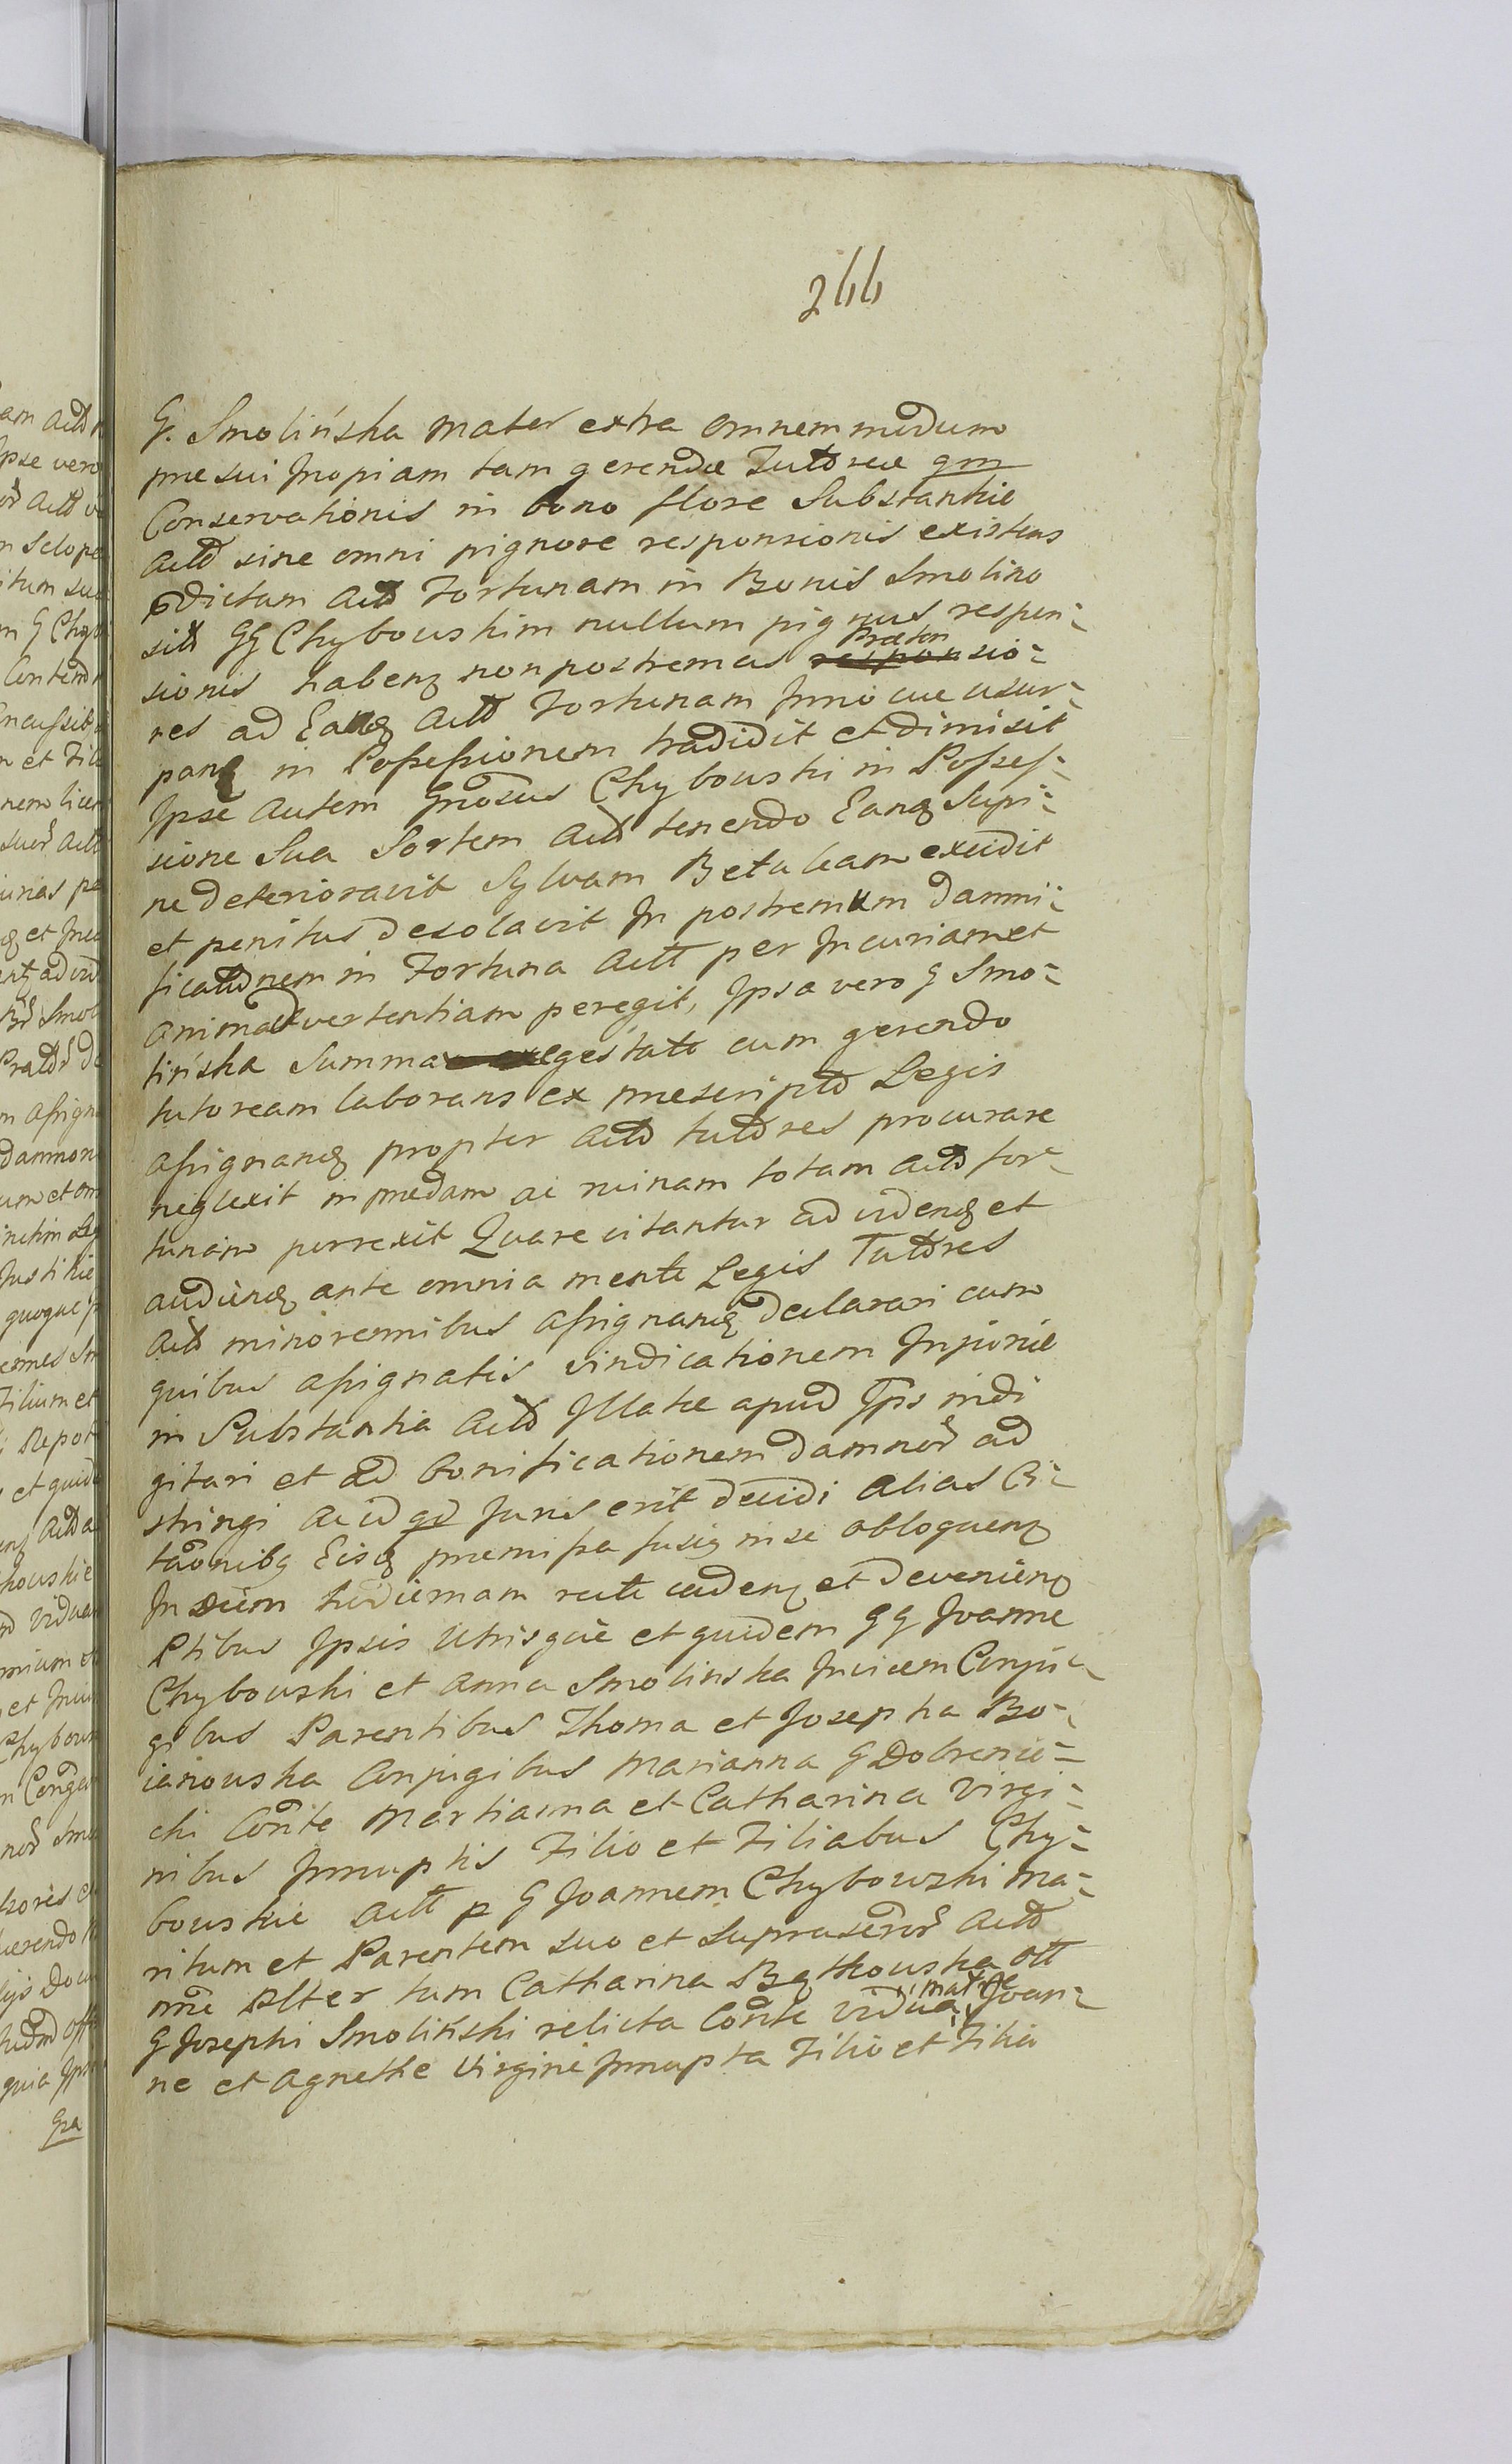 266
G. Smolińska mater extra omnem modum
præ sui Inopiam tam gerendæ Tutoreæ qm
Conservationis in bono flore Substantiæ
Actō sine omni pignore responsionis existens
pdictam Actō Fortunam in Bonis Smolino
sitō GG Chybowskim nullum pignus respon-
sionis habenq non postremas Præten sio-
nes ad Eanq Actō Fortunam Imo eæ usur-
panq in Possessionem tradidit et dimisit
Ipse Autem Gnosus Chybowski in Posses-
sione Sua Sortem Actō tenendo Eanq Supi-
ne deterioravit Sylvam Betuleam excidit
et penitus desolavit In postremum damni-
ficatōnem in Fortuna Actō per Incuriam et
Animadvertentiam peregit, Ipsa vero G Smo-
lińska Summa egestate cum gerendo
tutoream laborans ex præscripto Legis
Assignanq propter Actō tutōres procurare
neglexit in prædam ac ruinam totam Actō for-
tunam perrexit Quare citantur ad videnq et
audienq ante omnia mente Legis Tutōres
Actō minorennibus Assignanq declarari cum
quibus assignatis vindicationem Injuriæ
in Substantia Actō Illatæ apud Ips indi
gitari et ad bonificationem damnor ad
stringi ac id qd Juris erit decidi alias Ci-
taōnibq Eisq præmissa fusiq in se obloquenq
In diem hodiernam recte cadenq et devenienq
Ptibus Ipsis Utrisque et quidem GG Joanne
Chybowski et Anna Smolinska Invicem Conju-
gibus Parentibus Thoma et Josepha Bo-
ianowska Conjugibus Marianna G Dobrenie-
cki Conte Martianna et Catharina Virgi-
nibus Innuptis Filio et Filiabus Chy-
bowskie Actō p G Joannem Chybowski Ma-
ritum et Parentem suo et Suprascror Actō
nne Alter tum Catharina Bątkowska Olt
G Josephi Smoliński relicta Conte vidua matre Joan-
ne et Agnethe Virgine Innupta Filio et Filia